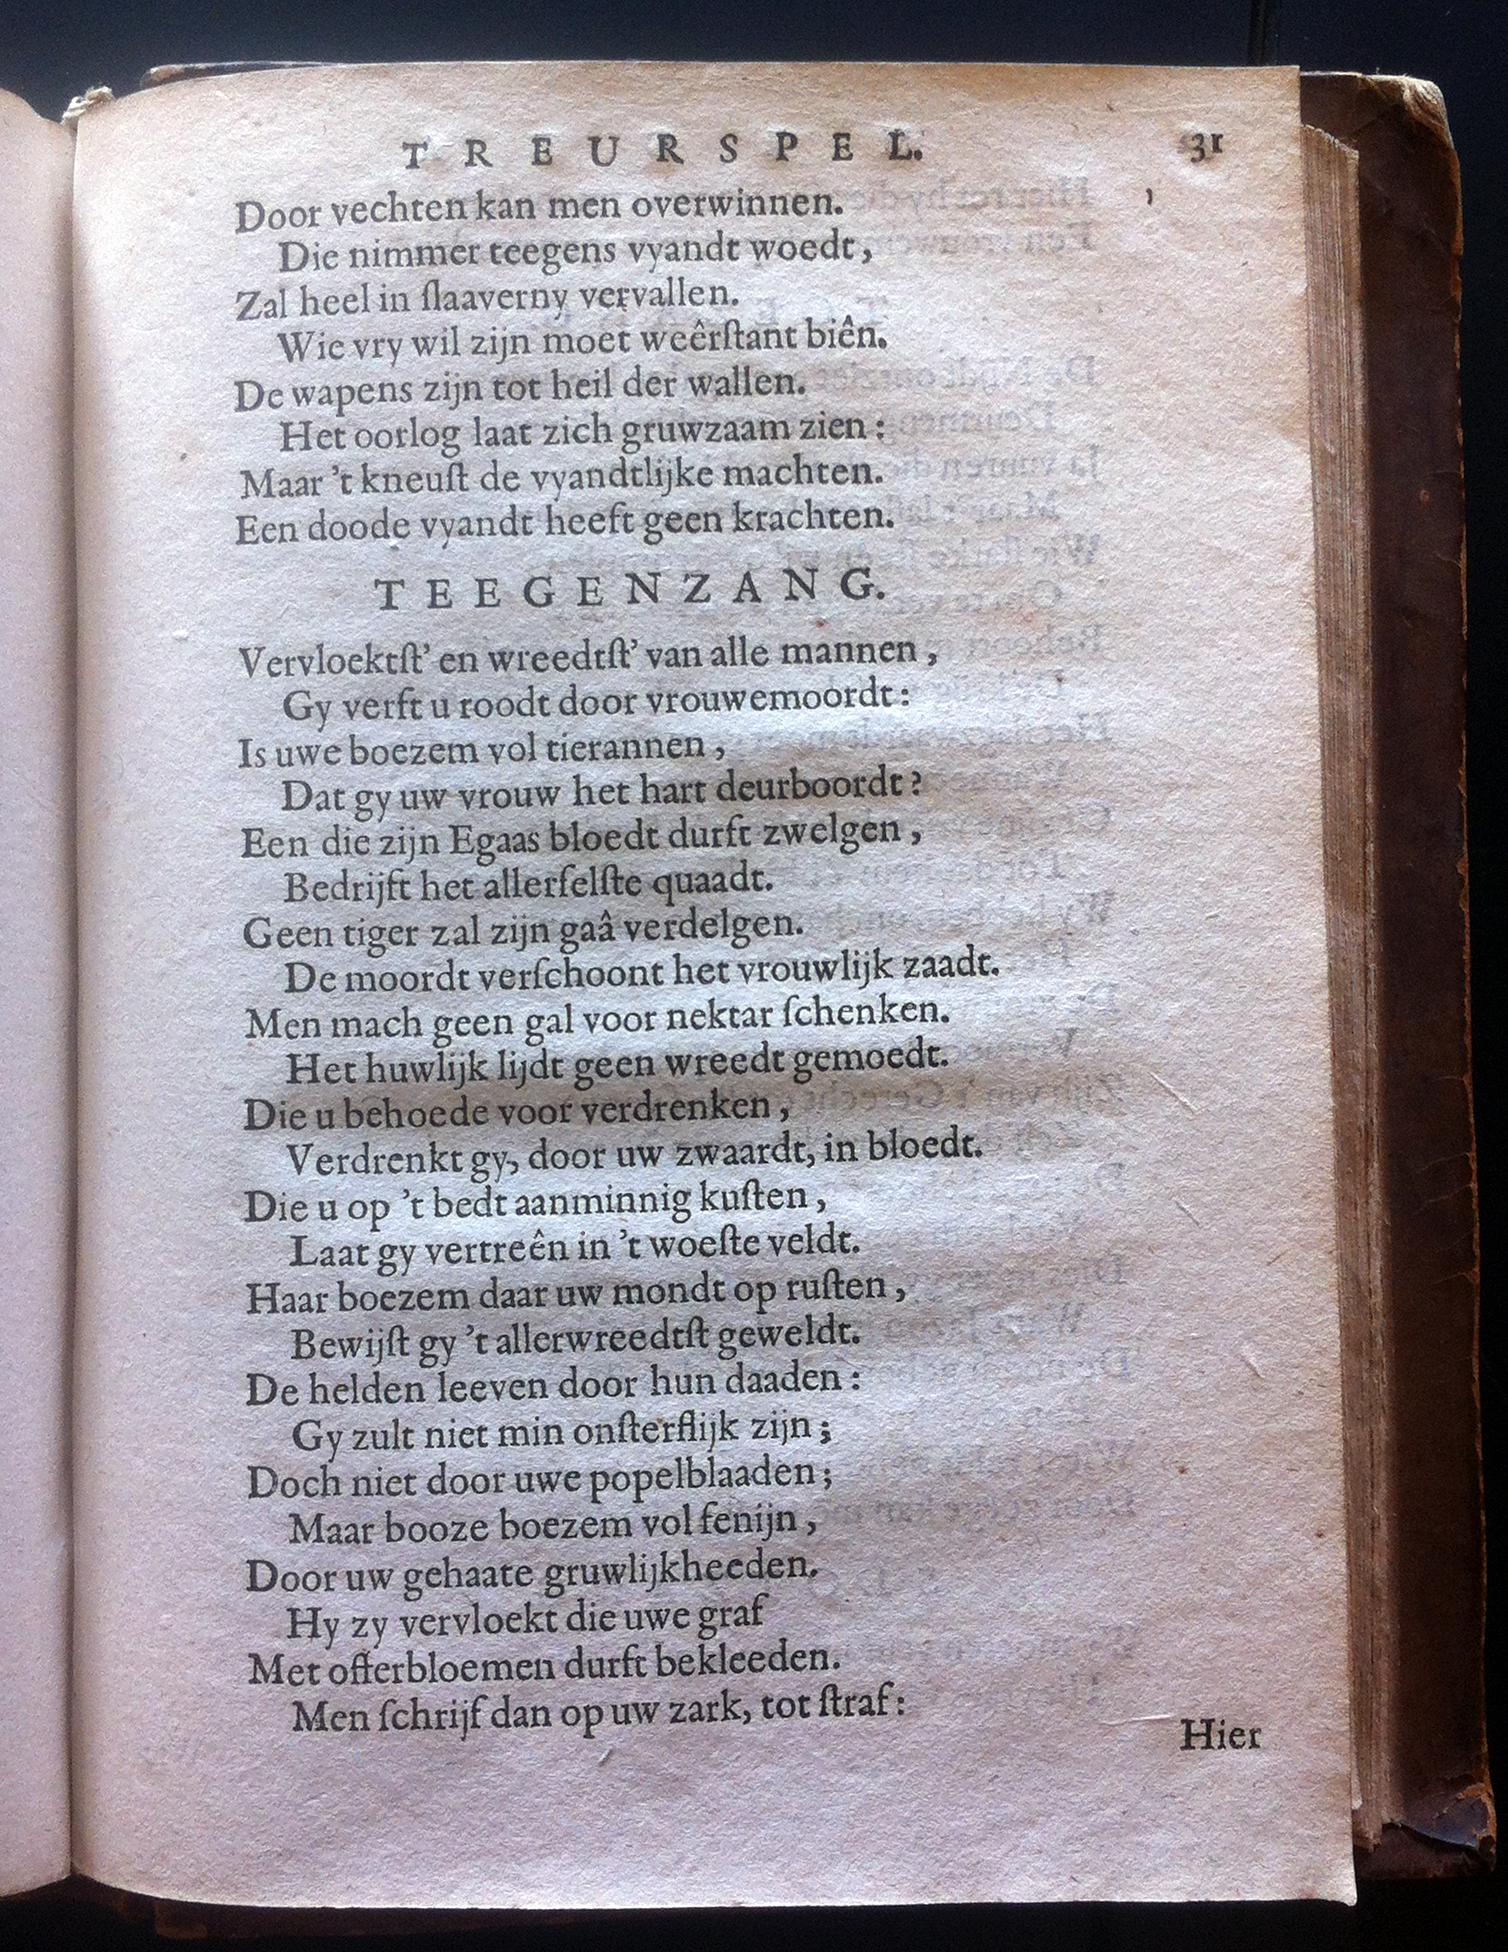 TREURSPEL. 31
Door vechten kan men overwinnen.
Die nimmer teegens vyandt woedt,
Zal heel in ſlaaverny vervallen.
Wie vry wil zijn moet weêrſtant biên.
De wapens zijn tot heil der wallen.
Het oorlog laat zich gruwzaam zien:
Maar 't kneuſt de vyandtlijke machten.
Een doode vyandt heeft geen krachten.
TEEGENZANG.
Vervloektſt' en wreedtſt' van alle mannen,
Gy verft u roodt door vrouwemoordt:
Is uwe boezem vol tierannen,
Dat gy uw vrouw het hart deurboordt?
Een die zijn Egaas bloedt durft zwelgen,
Bedrijft het allerfelſte quaadt.
Geen tiger zal zijn gaâ verdelgen.
De moordt verſchoont het vrouwlijk zaadt.
Men mach geen gal voor nektar ſchenken.
Het huwlijk lijdt geen wreedt gemoedt.
Die u behoede voor verdrenken,
Verdrenkt gy, door uw zwaardt, in bloedt.
Die u op 't bedt aanminnig kuſten,
Laat gy vertreên in 't woeſte veldt.
Haar boezem daar uw mondt op ruſten,
Bewijſt gy 't allerwreedtſt geweldt.
De helden leeven door hun daaden:
Gy zult niet min onſterflijk zijn;
Doch niet door uwe popelblaaden;
Maar booze boezem vol fenijn,
Door uw gehaate gruwlijkheeden.
Hy zy vervloekt die uwe graf
Met offerbloemen durft bekleeden.
Men ſchrijf dan op uw zark, tot ſtraf:
Hier